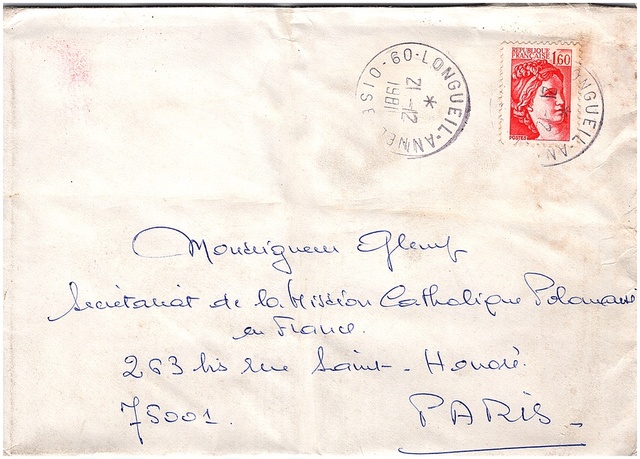 60-LONGUEIL-ANNEL
OISE
21-12
1981
REPUBLIQUE
FRANCAISE 1,60
POSTES
Monseigneur Glemp
Secrétariat de la Mission Catholique Polonaise
en France.
263 bis rue Saint-Honoré.
75001.
PARIS